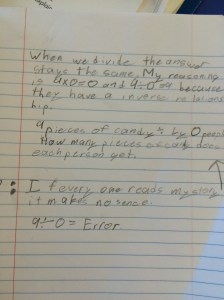 When we divide the answer
stays the same. My reasoning
is 9x0=0 and 9÷0=9 because
they have a inverse relations
hip.
9 pieces of candy ÷ by 0 people
How many pieces of candy does
each person get.
: If every one reads my story
it makes no sense.
9÷0= Error